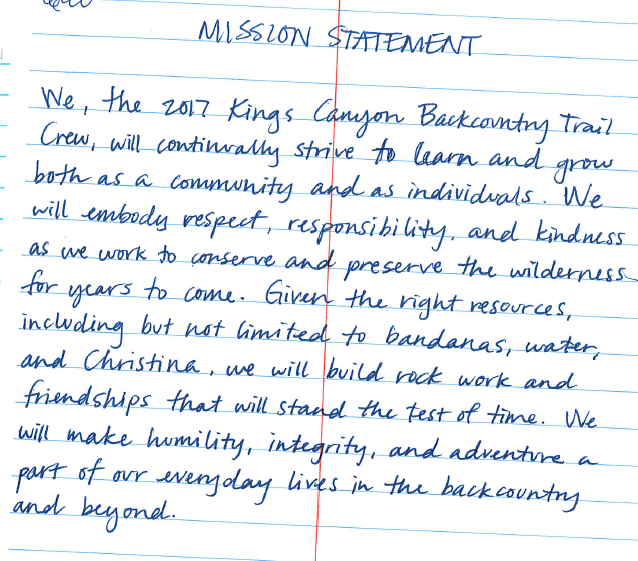 MISSION STATEMENT
We, the 2017 Kings Canyon Backcountry Trail
Crew, will continually strive to learn and grow
both as a community and as individuals. We
will embody respect, responsibility, and kindness
as we work to conserve and preserve the wilderness
for years to come. Given the right resources,
including but not limited to bandanas, water,
and Christina, we will build rock work and
friendships that will stand the test of time. We
will make humility, integrity, and adventure a
part of our everyday lives in the backcountry
and beyond.